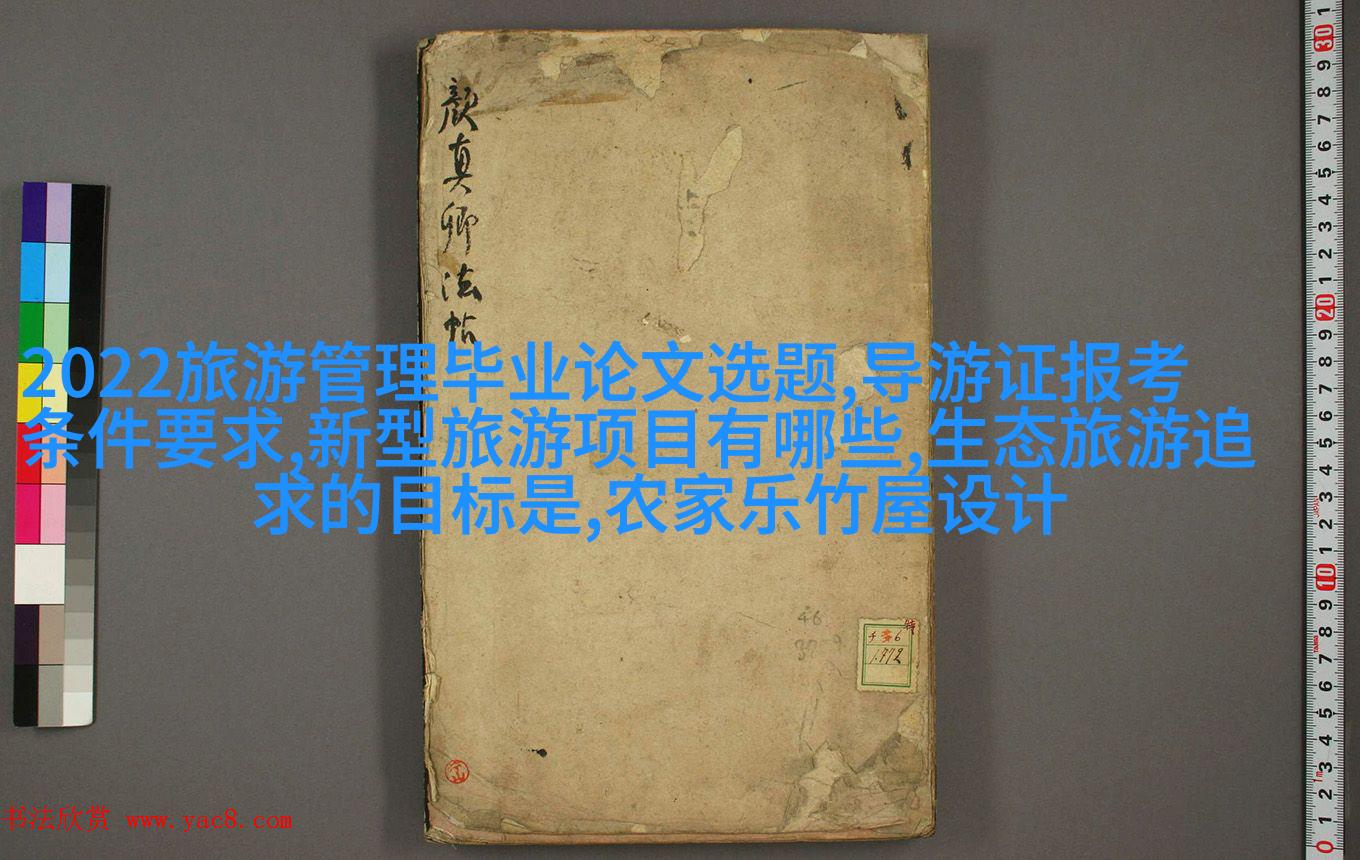 颜真卿法帖
2022旅游管理毕业论文选题,导游证报考
条件要求,新型旅游项目有哪些,生态旅游追
求的目标是,农家乐竹屋设计
46
特
1772
书法欣赏 www.yac8.com